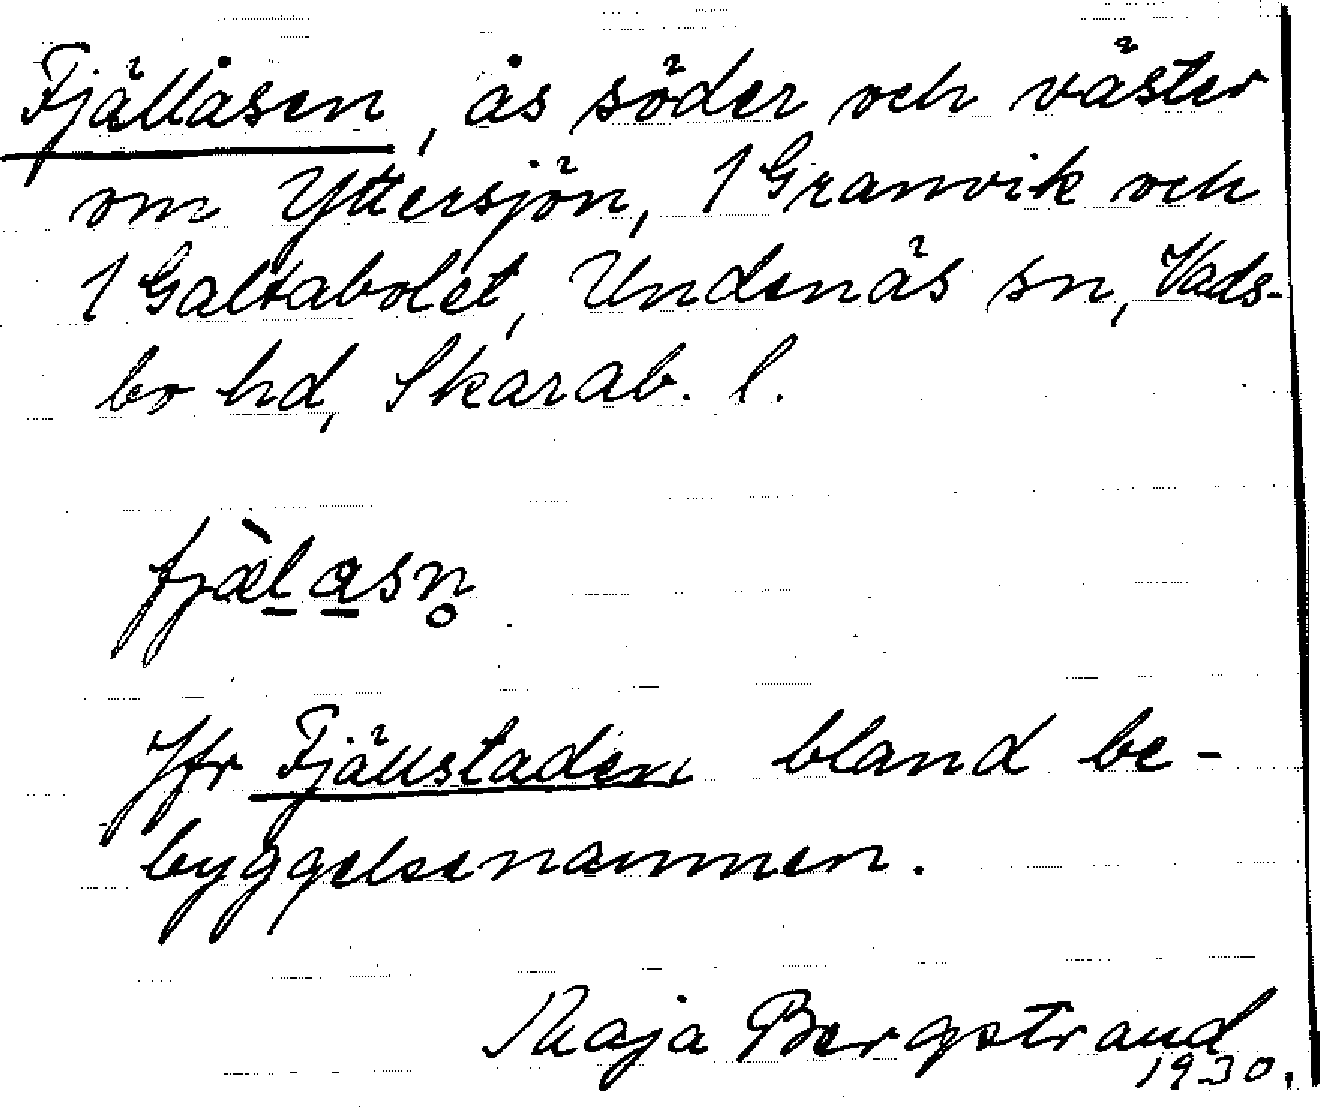 Fjällåsen, ås söder och väster
om Yttersjön, 1 Granvik och
1 Galtabolet, Undenäs sn, Vads-
bo hd, Skarab. l.
fjæ̀l̠a̠sn̥
Jfr Fjällstaden bland be-
byggelsenamnen.
Maja Bergstrand
1930.